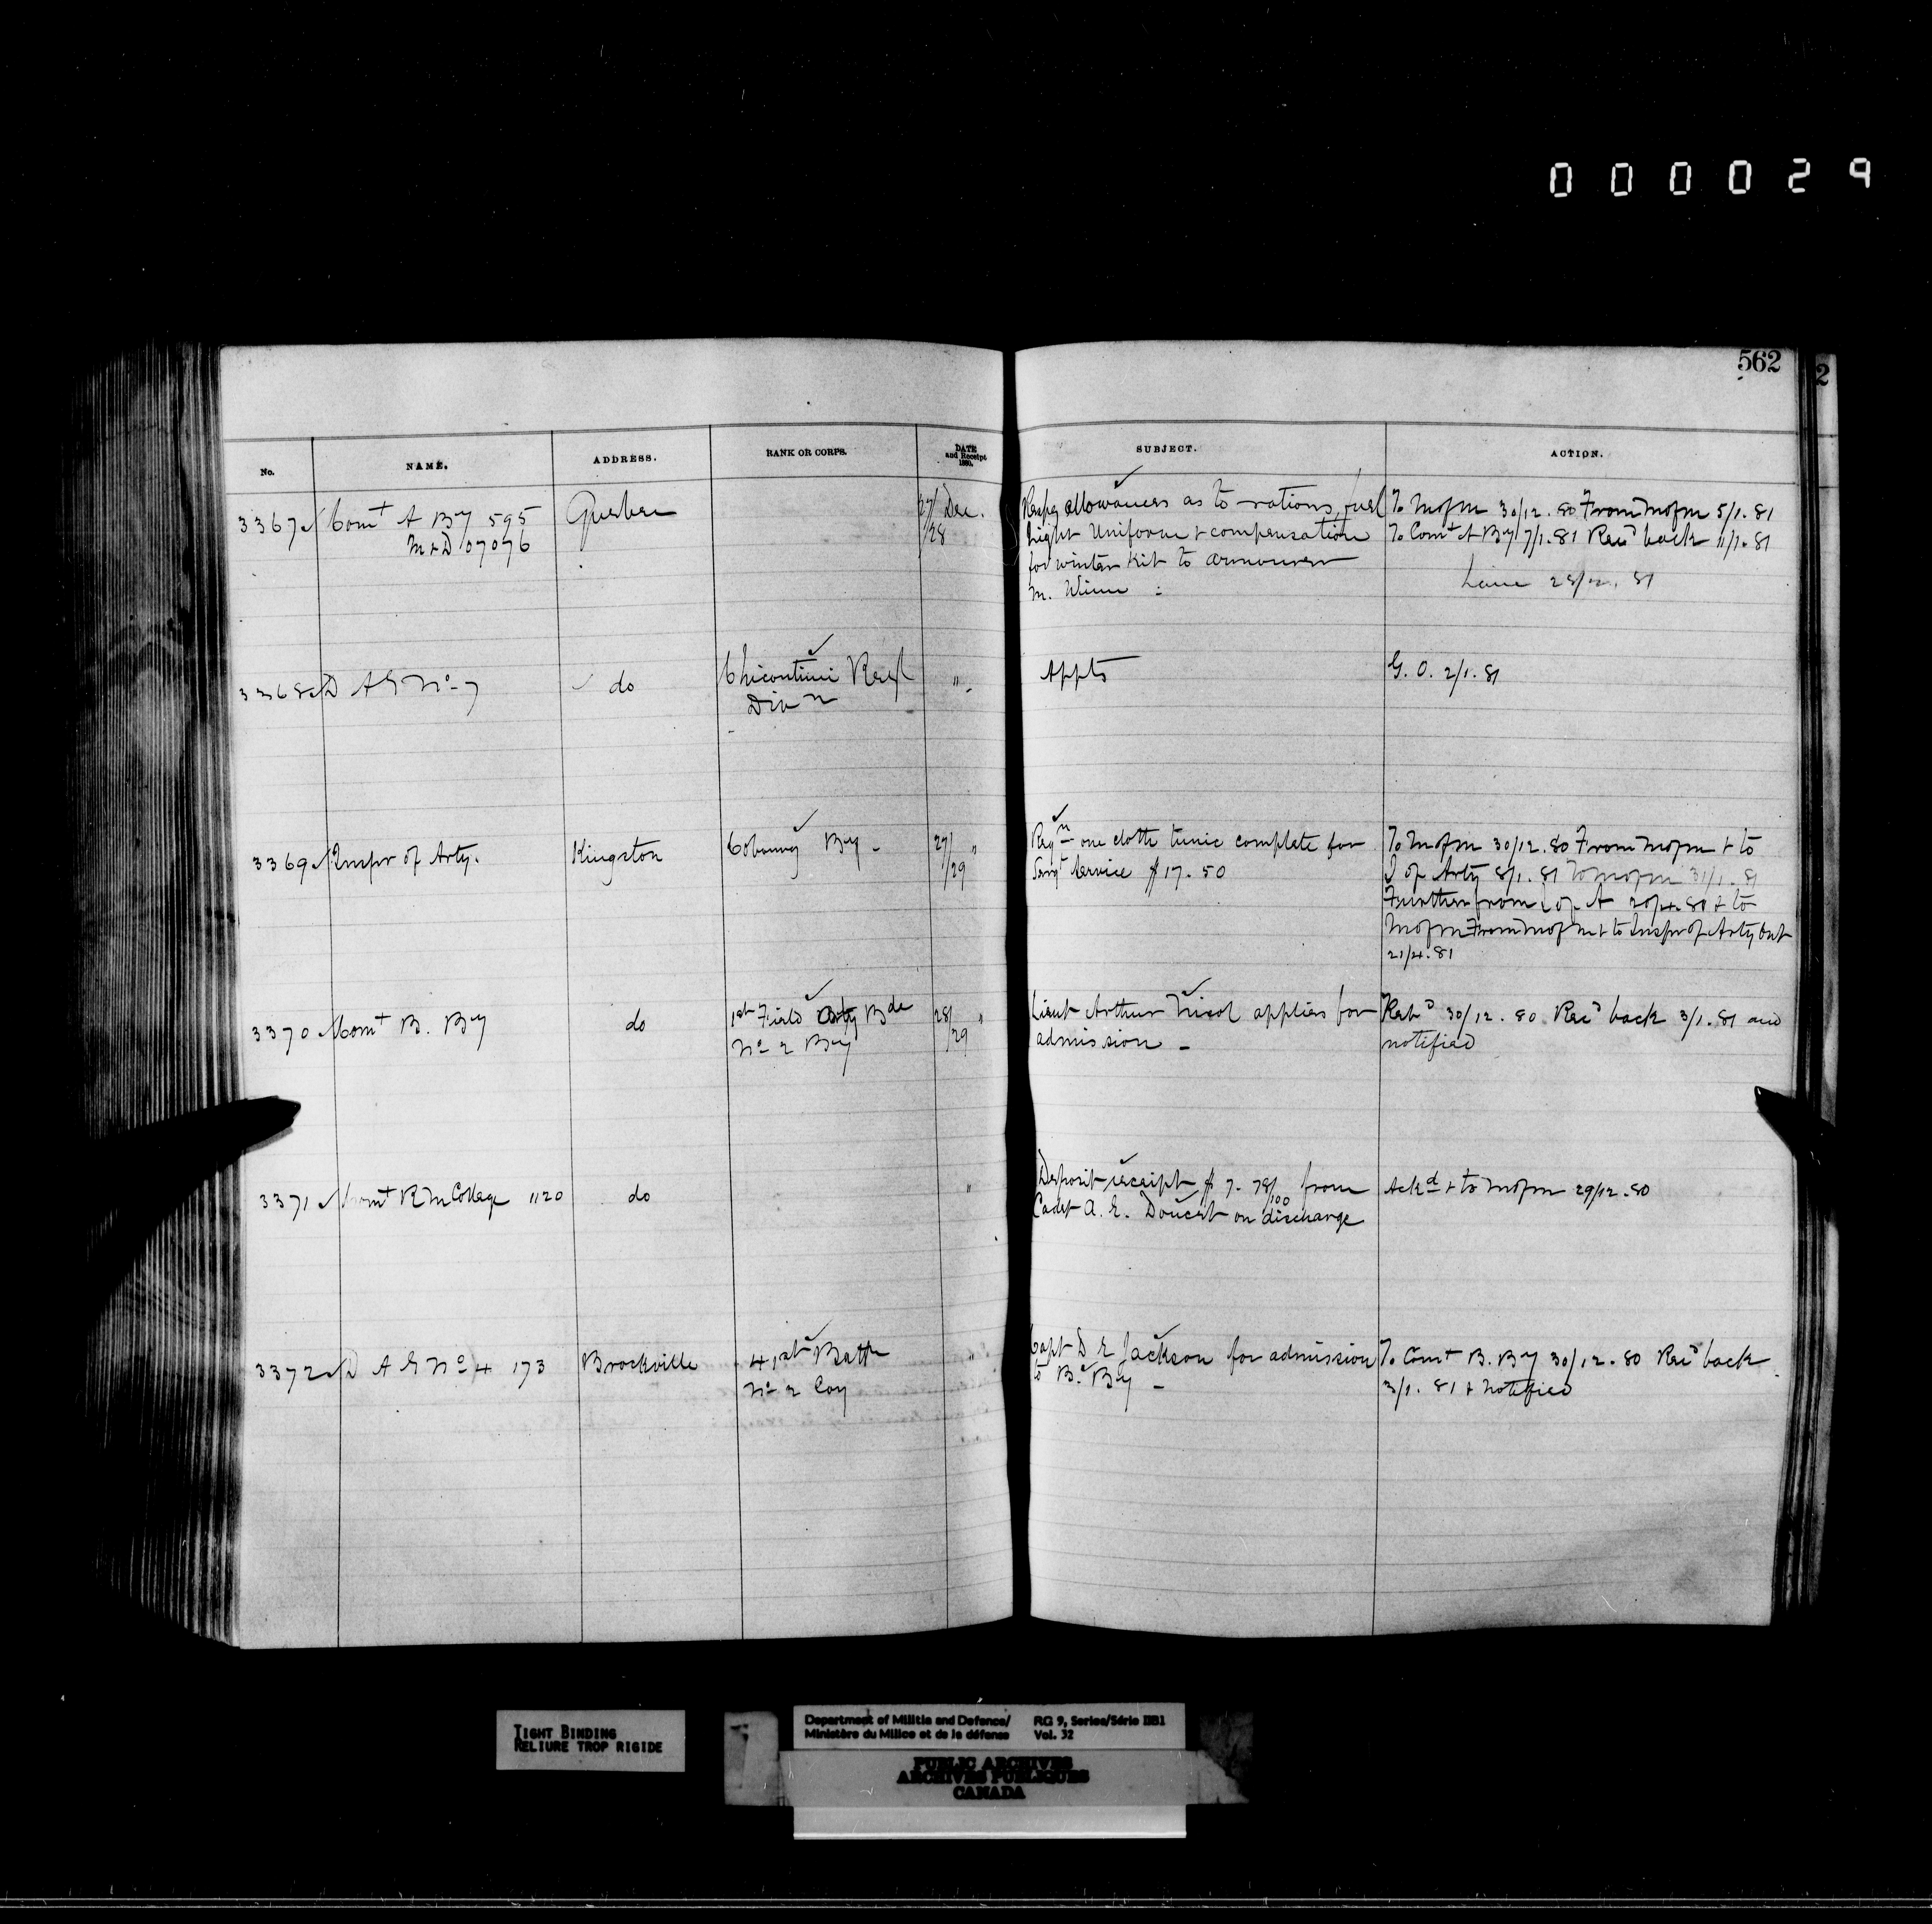 000029
562
No. NAME. ADDRESS. RANK OR CORPS. DATE and Receipt 1880. SUBJECT. ACTION.
3367 Comt A By 595 Quebec 27/28 Dec. Respg allowances as to rations, fuel To MofM 30/12.80 From MofM 5/1.81
M&D 07076 light Uniform & compensation To Comt A By 7/1.81 Recd back 11/1.81
for winter kit to armourer 28/12.81
M.
3368 D A G No 7 do Chicoutimi Resf " Appts G. O. 2/1.81
Divn
3369 Inspr of Arty. Kingston Cobourg By - 27/29 " Reqn one cloth tunic complete for To MofM 30/12.80 From MofM & to
Sergt Service $17.50 I of Arty 8/1.81 To MofM 31/1.81
Further from I of A 20/4.81 & to
MofM From MofM & to Inspr of Arty
21/4.81
3370 Comt B. By do 1st Field Arty Bde 28/29 " Lieut Arthur Nicol applies for 30/12.80 Recd back 3/1.81 and
No 2 By admission - notified
3371 Comt R M College 1120 do " Deposit receipt $7.78/100 from Ackd & to MofM 29/12.80
Cadet A. E. Doucet on discharge
3372 D A G No 4 173 Brockville 41st Battn " Capt D E Jackson for admission To Comt B. By 30/12.80 Recd back
No 2 Coy to B. By - 3/1.81 & notified
TIGHT BINDING
RELIURE TROP RIGIDE
Department of Militia and Defence/ RG 9, Series/Série IIB1
Ministère du Milice et de la défense Vol. 32
PUBLIC ARCHIVES
ARCHIVES PUBLIQUES
CANADA